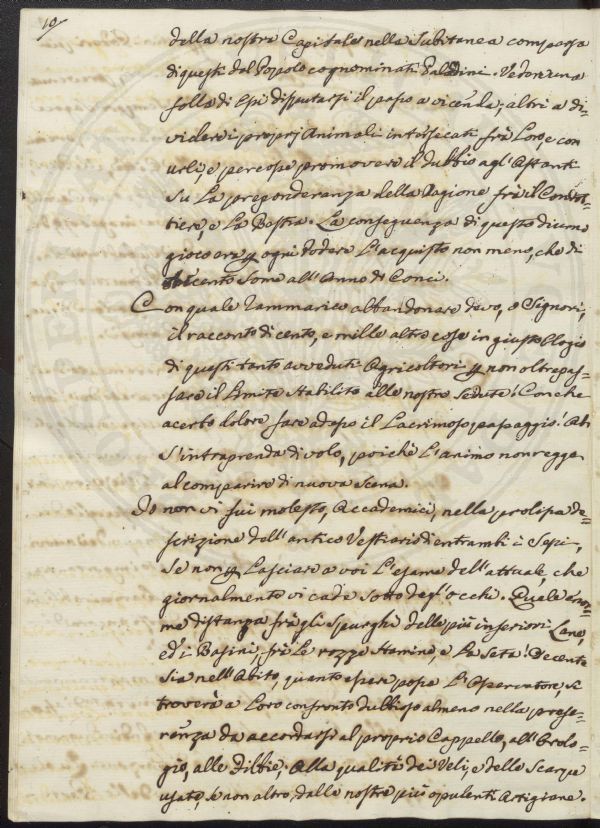 10
della nostra Capitale nella subitanea comparsa
di questi dal Popolo cognominati Paladini. Vedonsi una
folla di Essi disputarsi il passo a vicenda; altri a di-
videre i proprj Animali intrisecati frà Loro, e con
urli, e percosse promovere il dubbio agl'Astanti
su La preponderanza della Ragione frà il Condot-
tiere, e La Bestia. La conseguenza di questo diurno
gioco era ogni Podere L'acquisto non meno, che di
cento some all'Anno di Conci.
Con quale rammarico abbandonare devo, o Signori,
il racconto di cento, e mille altre cose in giusto Elogio
di questi tanto avveduti Agricoltori non oltrepas-
sare il Limite stabilito alle nostre Sedute! Con che
acerbo dolore fare adesso il Lacrimoso passaggio! Ah
s'intraprenda di volo, poichè L'animo non regge
al comparire di nuova Scena.
Io non vi fui molesto, Accademici, nella prolissa de-
scrizione dell'antico Vestiario di entrambi i Sessi,
se non Lasciare a voi L'esame dell'attuale, che
giornalmente vi cade sotto degl'occhi. Quale enor-
me distanza frà gli spurghi delle più inferiori Lane,
ed i Basini, frà Le rozze stamine, e La Seta! Decente
sia nell'Abito, quanto essere possa L'Osservatore, si
troverà a Loro confronto dubbioso almeno nella prefe-
renza da accordarsi al proprio Cappello, all'Orolo-
gio, alle Fibbie, Alla qualità dei Veli, e delle Scarpe
usate, se non altro, dalle nostre più opulenti Artigiane.